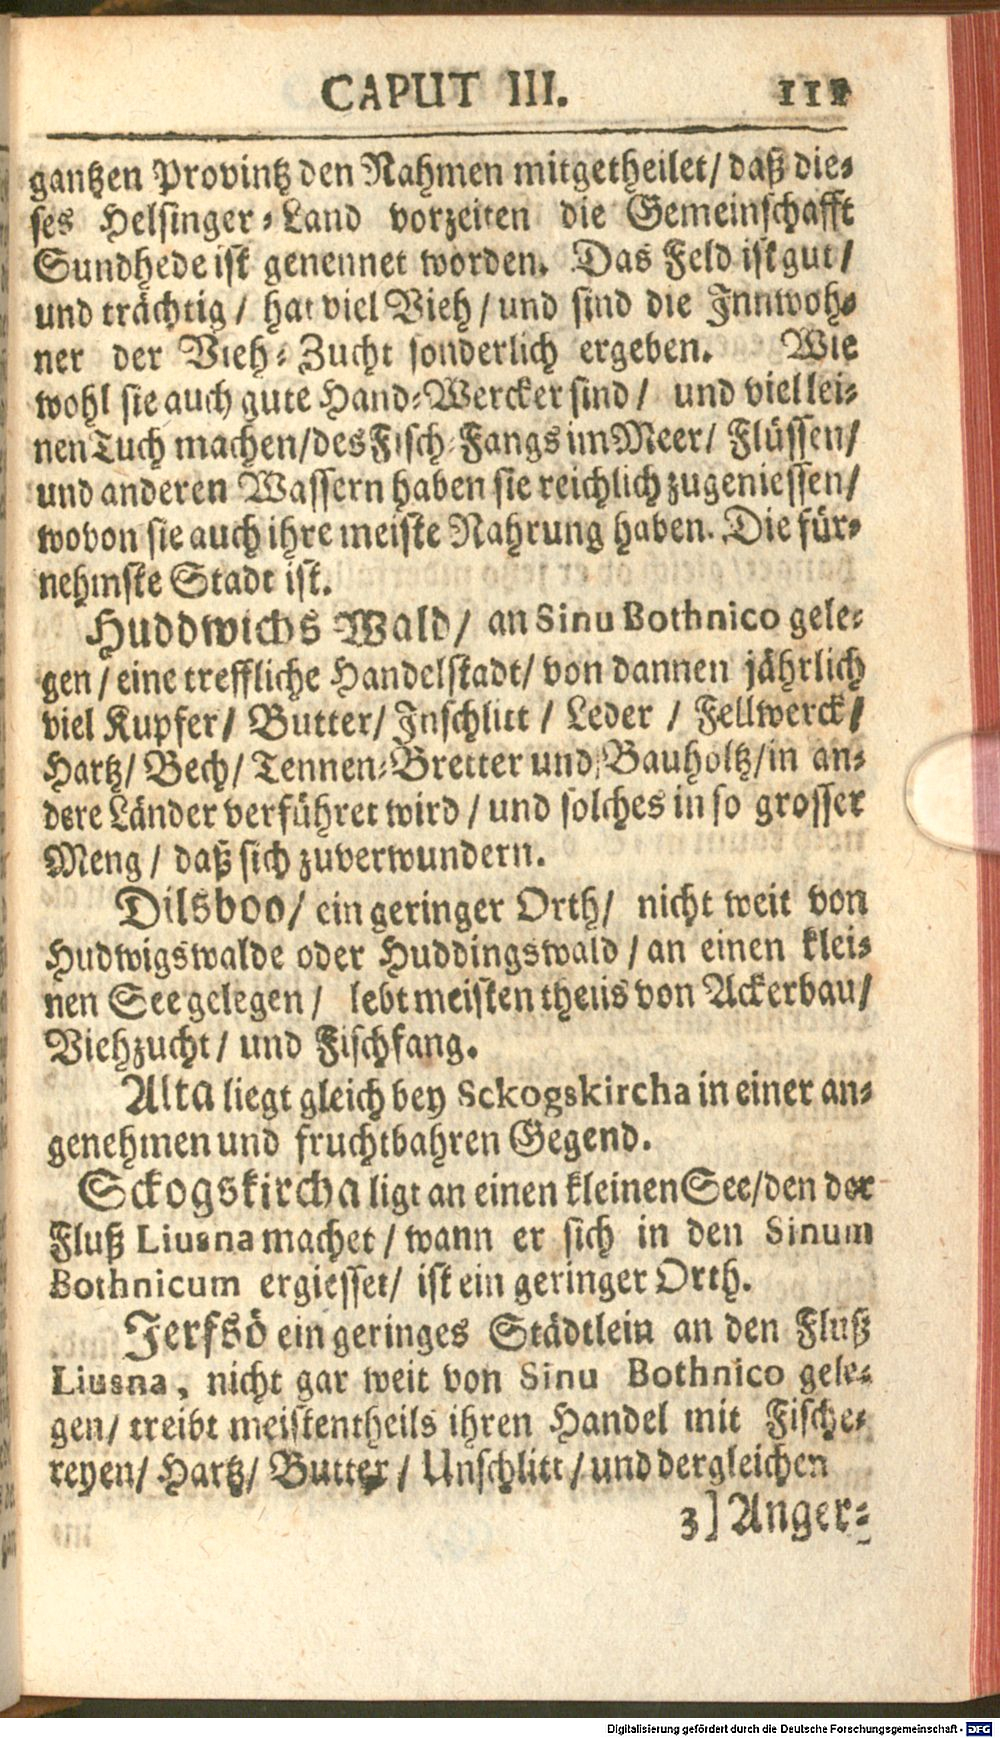 CAPUT III. 111
gantzen Provintz den Nahmen mitgetheilet/ daß die-
ses Helsinger-Land vorzeiten die Gemeinschafft
Sundhede ist genennet worden. Das Feld ist gut/
und trächtig/ hat viel Vieh/ und sind die Innwoh-
ner der Vieh-Zucht sonderlich ergeben. Wie
wohl sie auch gute Hand-Wercker sind/ und viel lei-
nen Tuch machen/ des Fisch-Fangs im Meer/ Flüssen/
und anderen Wassern haben sie reichlich zugeniessen/
wovon sie auch ihre meiste Nahrung haben. Die für-
nehmste Stadt ist.
Huddwichs Wald/ an Sinu Bothnico gele-
gen/ eine treffliche Handelstadt/ von dannen jährlich
viel Kupfer/ Butter/ Inschlitt/ Leder/ Fellwerck/
Hartz/ Bech/ Tennen-Bretter und Bauholtz/ in an-
dere Länder verführet wird/ und solches in so grosser
Meng/ daß sich zuverwundern.
Dilsboo/ ein geringer Orth/ nicht weit von
Hudwigswalde oder Huddingswald/ an einen klei-
nen See gelegen/ lebt meisten theils von Ackerbau/
Viehzucht/ und Fischfang.
Alta liegt gleich bey Sckogskircha in einer an-
genehmen und fruchtbahren Gegend.
Sckogskircha ligt an einen kleinen See/ den der
Fluß Liusna machet/ wann er sich in den Sinum
Bothnicum ergiesset/ ist ein geringer Orth.
Jerfsö ein geringes Städtlein an den Fluß
Liusna, nicht gar weit von Sinu Bothnico gele-
gen/ treibt meistentheils ihren Handel mit Fische-
reyen/ Hartz/ Butter/ Unschlitt/ und dergleichen
3] Anger-
Digitalisierung gefördert durch die Deutsche Forschungsgemeinschaft - DFG